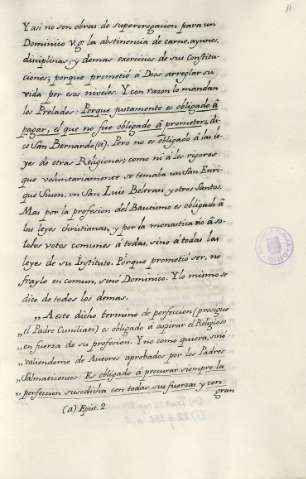 Y así no son obras de supererogacion para un
Dominico v.g. la abstinencia de carne, ayunos,
disciplinas, y demas exercicios de sus Constitu-
ciones; porque prometió á Dios arreglar su
vida por esos niveles. Y con razon lo mandan
los Prelados: Porque justamente es obligado á
pagar, el que no fue obligado á prometer, di-
ce San Bernardo (a). Pero no es obligado á las le-
yes de otras Religiones; como ni á los rigores
que voluntariamente se tomaba un San Enri-
que Suson, un San Luis Beltran y otros Santos.
Mas por la profesion del Bautismo es obligado á
las leyes christianas, y por la monastica no á so-
los los votos comunes á todas, sino á todas las
leyes de su Instituto. Porque prometió ser, no
frayle en comun, sinó Dominico. Y lo mismo se
dice de todos los demas.
„A este dicho termino de perfeccion (prosigue
el Padre Cuniliati) es obligado á aspirar el Religioso
„en fuerza de su profesion. Y no como quiera, sino
„valiendome de Autores aprobados por los Padres
„Salmaticenses: Es obligado á procurar siempre la
„perfeccion susodicha con todas sus fuerzas y con
gran
(a) Epist. 2